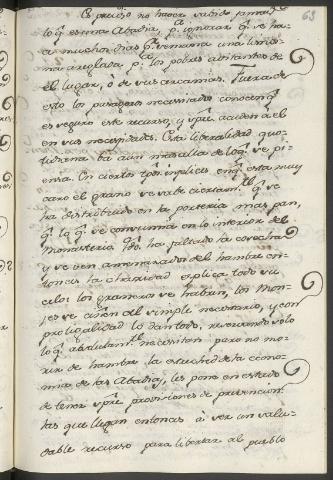 63
Es preciso no haver savido jamas
lo q.e es una Abadia, p.a ignorar q.e se ha-
muchos dias q.e semana una limos-
na arreglada p.a los pobres avitantes de
el lugar, o de sus cercanias. Fuera de
esto los pasageros necesitados conocen q.e
es seguro este recurso, y spre acuden a el
en sus necesidades. Esta liberalidad quo-
tidiana va aun mas alla de lo q.e se pi-
ensa. En ciertos tpos. infelices en q.e esta muy
caro el grano se sabe ciertam.te q.e se
ha distribuido en la porteria mas pan,
q.e lo q.e se consumia en lo interior del
Monasterio. Q.do ha faltado la cosecha
y se ven amenazados del hambre en-
tonces la charidad esplica todo su
celo: los graneros se habren, los Mon-
jes se ciñen al simple necesario, y con
prodigalidad lo dan todo, reservando solo
lo q.e absolutam.te necesitan para no mo-
rir de hambre la estrechez de la econo-
mia de las Abadias, les pone en estado
de tener spre provisiones de prevencion
tas que llegan entonces a ser un salu-
dable recurso para libertar al pueblo